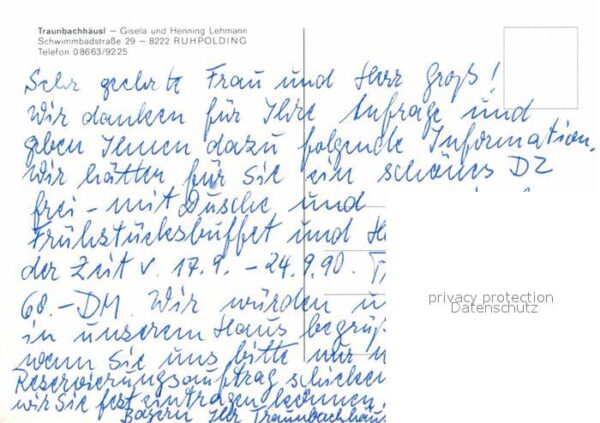 Traunbachhäusl – Gisela und Henning Lehmann
Schwimmbadstraße 29 – 8222 RUHPOLDING
Telefon 08663/9225
Sehr geehrte Frau und Herr Groß!
Wir danken für Ihre Anfrage und
geben Ihnen dazu folgende Information.
Wir hätten für Sie ein schönes DZ
frei – mit Dusche und
Frühstücksbuffet und
der Zeit v. 17.9. – 24.9.90.
68.– DM. Wir würden
in unserem Haus
wenn Sie uns bitte nur
Reservierungsauftrag schicken
wir Sie fest eintragen können.
Bayern Ihr Traunbachhäus
privacy protection
Datenschutz